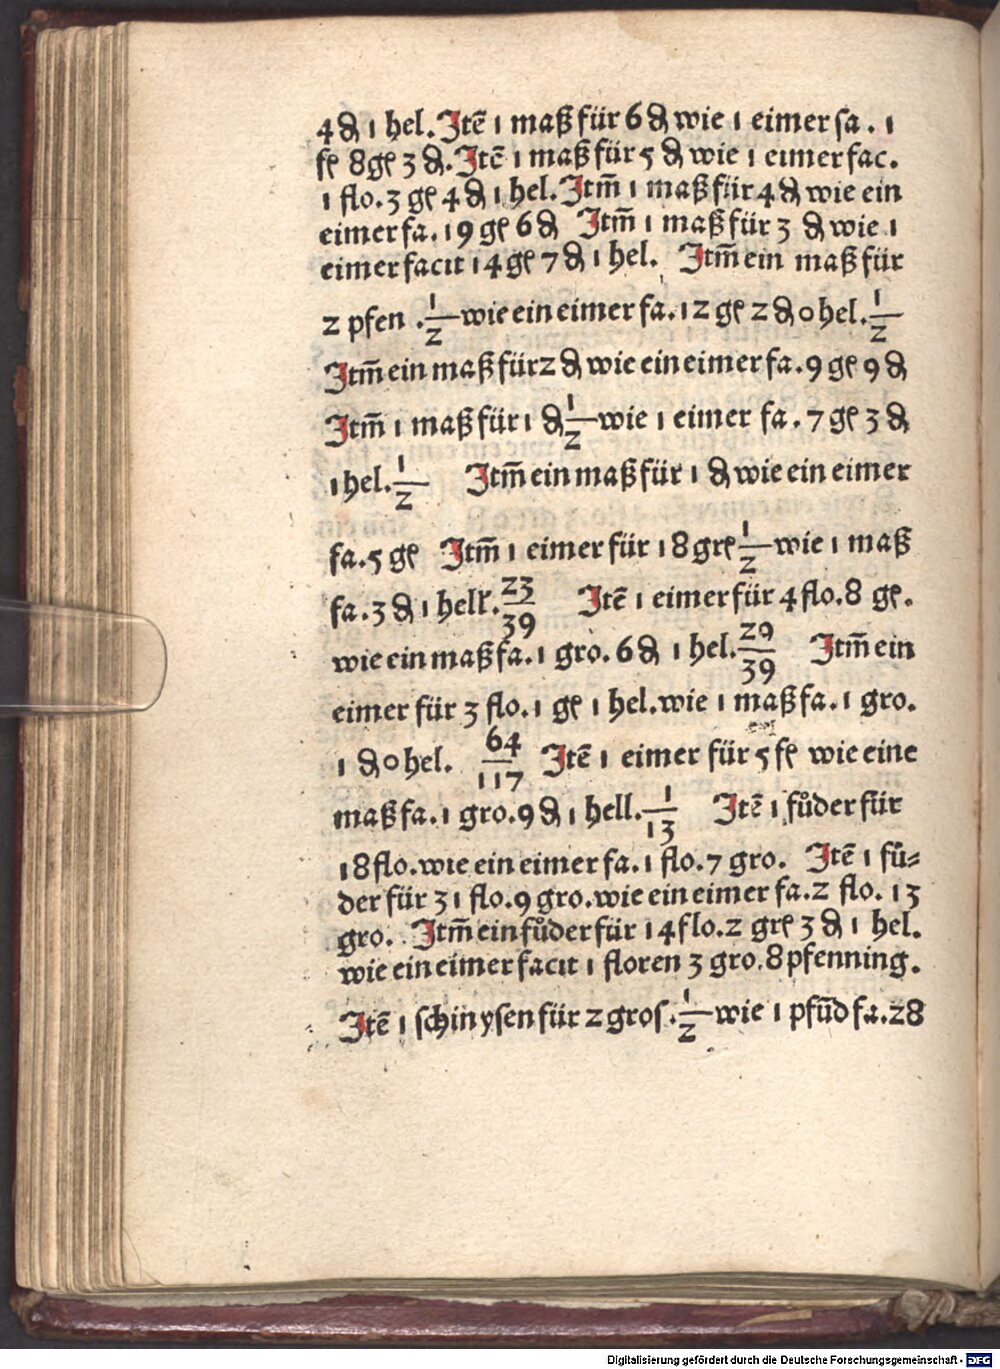 4 ₰ 1 hel. Itē 1 maß für 6 ₰ wie 1 eimer fa. 1
fl 8 gl 3 ₰. Itē 1 maß für 5 ₰ wie 1 eimer fac.
1 flo. 3 gl 4 ₰ 1 hel. Itm̄ 1 maß für 4 ₰ wie ein
eimer fa. 19 gl 6 ₰ Itm̄ 1 maß für 3 ₰ wie 1
eimer facit 14 gl 7 ₰ 1 hel. Itm̄ ein maß für
2 pfen . 1/2 wie ein eimer fa. 12 gl 2 ₰ 0 hel. 1/2
Itm̄ ein maß für 2 ₰ wie ein eimer fa. 9 gl 9 ₰
Itm̄ 1 maß für 1 ₰ 1/2 wie 1 eimer fa. 7 gl 3 ₰
1 hel. 1/2 Itm̄ ein maß für 1 ₰ wie ein eimer
fa. 5 gl Itm̄ 1 eimer für 18 grl 1/2 wie 1 maß
fa. 3 ₰ 1 hell. 23/39 Itē 1 eimer für 4 flo. 8 gl.
wie ein maß fa. 1 gro. 6 ₰ 1 hel. 29/39 Itm̄ ein
eimer für 3 flo. 1 gl 1 hel. wie 1 maß fa. 1 gro.
1 ₰ 0 hel. 64/117 Itē 1 eimer für 5 fl wie eine
maß fa. 1 gro. 9 ₰ 1 hell. 1/13 Itē 1 fůder für
18 flo. wie ein eimer fa. 1 flo. 7 gro. Itē 1 fů⸗
der für 31 flo. 9 gro. wie ein eimer fa. 2 flo. 13
gro. Itm̄ ein fůder für 14 flo. 2 grl 3 ₰ 1 hel.
wie ein eimer facit 1 floren 3 gro. 8 pfenning.
Itē 1 schin ysen für 2 gros. 1/2 wie 1 pfūd fa. 28
Digitalisierung gefördert durch die Deutsche Forschungsgemeinschaft - DFG